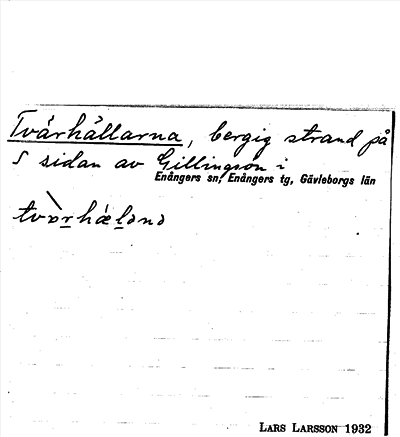 Tvärhällarna, bergig strand på
S sidan av Gillingson i
Enångers sn, Enångers tg, Gävleborgs län
LARS LARSSON 1932